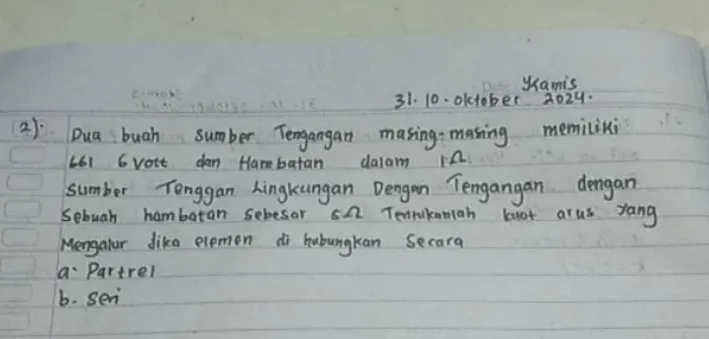 Kamis
31. 10 - oktober 2024.
2). Dua buah sumber Tengangan masing-masing memiliki
661 6 Volt dan Hambatan dalam 1Ω
Sumber Tenggan Lingkungan Dengan Tengangan dengan
Sebuah hambatan Sebesar 6Ω Tentukanlah kuat arus Yang
Mengalur dika elemen di hubungkan Secara
a. Partrel
b. Seri